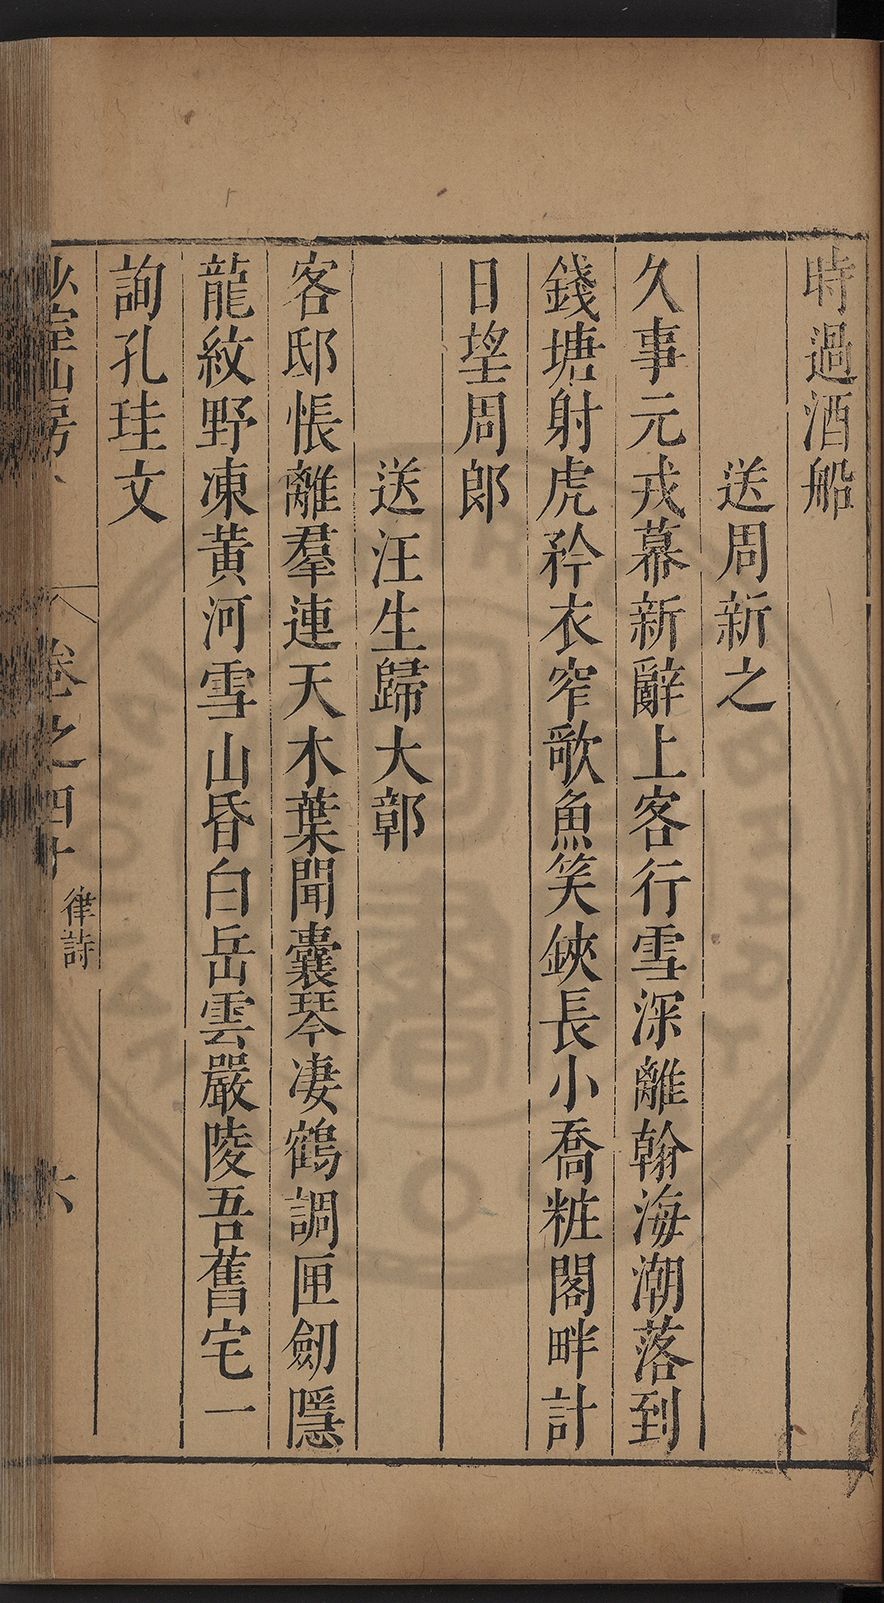 時過酒船
送周新之
久事元戎幕新辭上客行雪深離翰海潮落到
錢塘射虎矜衣窄歌魚笑鋏長小喬粧閣畔計
日望周郎
送汪生歸大鄣
客邸悵離羣連天木葉聞囊琴凄鶴調匣劒隱
龍紋野凍黄河雪山昏白岳雲嚴陵吾舊宅一
詢孔珪文
山房
卷之四十
律詩
六